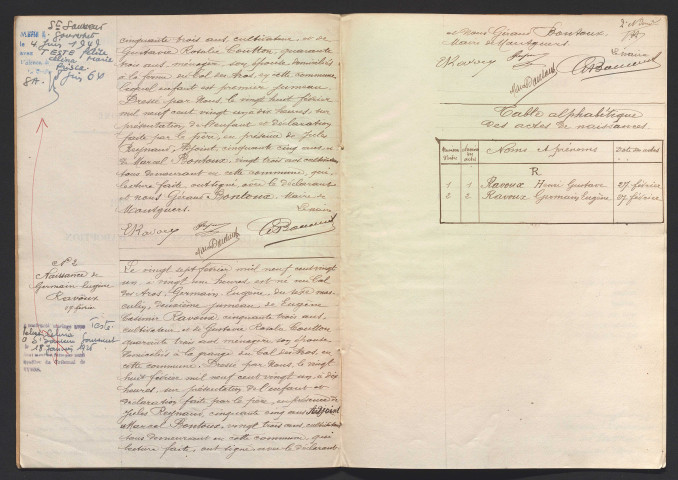 St Sauveur
le 4 Juin 1949
TESTE
cinquante trois ans cultivateur, et de
Gustavie Rosalie Coutton, quarante
trois ans ménagère, son épouse domiciliés
à la ferme du Col des Aros, en cette commune
lequel enfant est premier jumeau.
Dressé par Nous, le vingt huit février
mil neuf cent vingt un, à dix heures, sur
présentation de l'enfant et déclaration
faite par le père, en présence de Jules
Reynaud, Adjoint, cinquante cinq ans, et
de Marcel Bontoux, vingt trois ans cultivateur
tous demeurant en cette commune, qui,
lecture faite, ont signé avec le déclarant
et nous Girard Bontoux, Maire de
Montguers.
Le maire
E Ravoux
N° 2
Naissance de
Germain Eugène
Ravoux
27 février
Le vingt sept février mil neuf cent vingt
un, à vingt une heures, est né au Col
des Aros, Germain, Eugène, du sexe mas-
culin, deuxième jumeau, de Eugène
Casimir Ravoux cinquante trois ans,
cultivateur et de Gustavie Rosalie Coutton
quarante trois ans ménagère son épouse
domiciliés à la grange du Col des Aros, en
cette commune. Dressé par Nous, le vingt
huit février mil neuf cent vingt un, à dix
heures, sur présentation de l'enfant et
déclaration faite par le père, en présence de
Jules Reynaud, cinquante cinq ans Adjoint
Marcel Bontoux, vingt trois ans, cultivateur
tous demeurant en cette commune, qui
lecture faite, ont signé avec le déclarant
18 Janvier
et Nous Girard Bontoux
Maire de Montguers.
Le maire
E Ravoux
Table alphabétique
des actes de naissances.
Noms et Prénoms
R
1 1 Ravoux Henri Gustave 27 février
2 2 Ravoux Germain Eugène 27 février